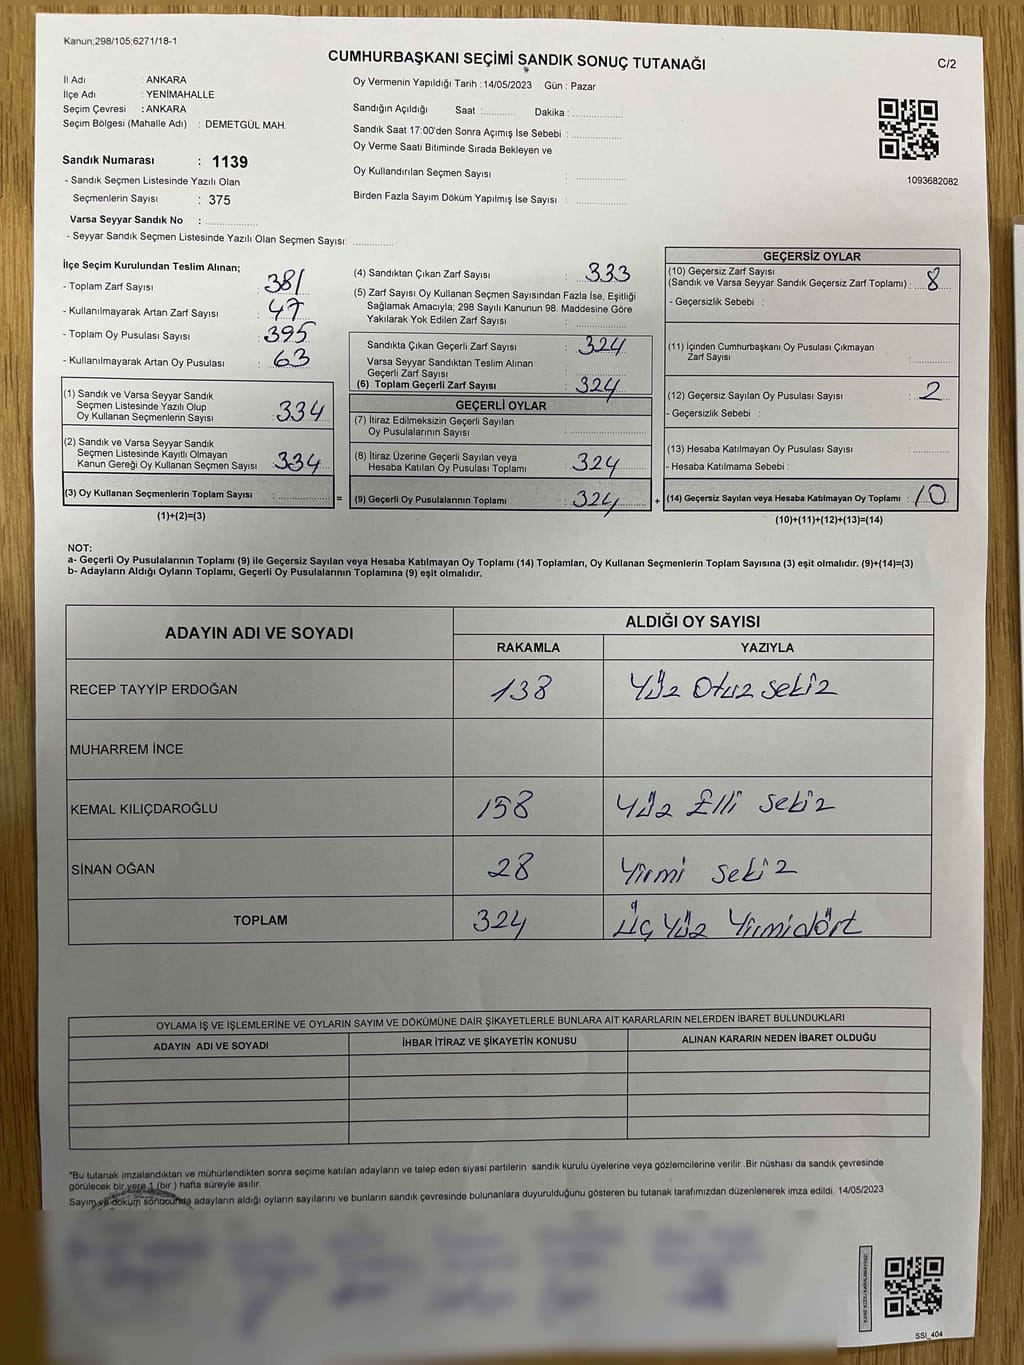 Kanun;298/105;6271/18-1
CUMHURBAŞKANI SEÇİMİ SANDIK SONUÇ TUTANAĞI
C/2
İl Adı : ANKARA
İlçe Adı : YENİMAHALLE
Seçim Çevresi : ANKARA
Seçim Bölgesi (Mahalle Adı) : DEMETGÜL MAH.
Sandık Numarası : 1139
- Sandık Seçmen Listesinde Yazılı Olan
Seçmenlerin Sayısı : 375
Varsa Seyyar Sandık No : ..............
- Seyyar Sandık Seçmen Listesinde Yazılı Olan Seçmen Sayısı: ..............
Oy Vermenin Yapıldığı Tarih : 14/05/2023 Gün : Pazar
Sandığın Açıldığı Saat :............ Dakika : ..................
Sandık Saat 17:00'den Sonra Açımış İse Sebebi : ..................
Oy Verme Saati Bitiminde Sırada Bekleyen ve
Oy Kullandırılan Seçmen Sayısı : ..................
Birden Fazla Sayım Döküm Yapılmış İse Sayısı : ..................
1093682082
İlçe Seçim Kurulundan Teslim Alınan;
- Toplam Zarf Sayısı : 381
- Kullanılmayarak Artan Zarf Sayısı : 47
- Toplam Oy Pusulası Sayısı : 395
- Kullanılmayarak Artan Oy Pusulası : 63
(1) Sandık ve Varsa Seyyar Sandık
Seçmen Listesinde Yazılı Olup
Oy Kullanan Seçmenlerin Sayısı : 334
(2) Sandık ve Varsa Seyyar Sandık
Seçmen Listesinde Kayıtlı Olmayan
Kanun Gereği Oy Kullanan Seçmen Sayısı : 334
(3) Oy Kullanan Seçmenlerin Toplam Sayısı : ..............
(1)+(2)=(3)
=
(4) Sandıktan Çıkan Zarf Sayısı : 333
(5) Zarf Sayısı Oy Kullanan Seçmen Sayısından Fazla İse, Eşitliği
Sağlamak Amacıyla; 298 Sayılı Kanunun 98. Maddesine Göre
Yakılarak Yok Edilen Zarf Sayısı : ..................
Sandıkta Çıkan Geçerli Zarf Sayısı : 324
Varsa Seyyar Sandıktan Teslim Alınan
Geçerli Zarf Sayısı : ..................
(6) Toplam Geçerli Zarf Sayısı : 324
GEÇERLİ OYLAR
(7) İtiraz Edilmeksizin Geçerli Sayılan
Oy Pusulalarının Sayısı : ..................
(8) İtiraz Üzerine Geçerli Sayılan veya
Hesaba Katılan Oy Pusulası Toplamı : 324
(9) Geçerli Oy Pusulalarının Toplamı : 324
+
GEÇERSİZ OYLAR
(10) Geçersiz Zarf Sayısı
(Sandık ve Varsa Seyyar Sandık Geçersiz Zarf Toplamı) : 8
- Geçersizlik Sebebi :
(11) İçinden Cumhurbaşkanı Oy Pusulası Çıkmayan
Zarf Sayısı : ..............
(12) Geçersiz Sayılan Oy Pusulası Sayısı : 2
- Geçersizlik Sebebi :
(13) Hesaba Katılmayan Oy Pusulası Sayısı : ..............
- Hesaba Katılmama Sebebi :
(14) Geçersiz Sayılan veya Hesaba Katılmayan Oy Toplamı : 10
(10)+(11)+(12)+(13)=(14)
NOT:
a- Geçerli Oy Pusulalarının Toplamı (9) ile Geçersiz Sayılan veya Hesaba Katılmayan Oy Toplamı (14) Toplamları, Oy Kullanan Seçmenlerin Toplam Sayısına (3) eşit olmalıdır. (9)+(14)=(3)
b- Adayların Aldığı Oyların Toplamı, Geçerli Oy Pusulalarının Toplamına (9) eşit olmalıdır.
ADAYIN ADI VE SOYADI
ALDIĞI OY SAYISI
RAKAMLA YAZIYLA
RECEP TAYYİP ERDOĞAN 138 Yüz Otuz sekiz
MUHARREM İNCE
KEMAL KILIÇDAROĞLU 158 Yüz Elli sekiz
SİNAN OĞAN 28 Yirmi sekiz
TOPLAM 324 Üç Yüz Yirmidört
OYLAMA İŞ VE İŞLEMLERİNE VE OYLARIN SAYIM VE DÖKÜMÜNE DAİR ŞİKAYETLERLE BUNLARA AİT KARARLARIN NELERDEN İBARET BULUNDUKLARI
ADAYIN ADI VE SOYADI İHBAR İTİRAZ VE ŞİKAYETİN KONUSU ALINAN KARARIN NEDEN İBARET OLDUĞU
*Bu tutanak imzalandıktan ve mühürlendikten sonra seçime katılan adayların ve talep eden siyasi partilerin sandık kurulu üyelerine veya gözlemcilerine verilir .Bir nüshası da sandık çevresinde
görülecek bir yere 1 (bir ) hafta süreyle asılır.
Sayım ve döküm sonucunda adayların aldığı oyların sayılarını ve bunların sandık çevresinde bulunanlara duyurulduğunu gösteren bu tutanak tarafımızdan düzenlenerek imza edildi. 14/05/2023
SSI_404